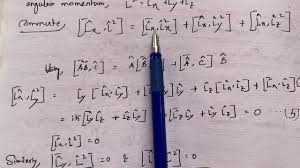 angular momentum, L̂² = L̂x² + L̂y² + L̂z²
commute [L̂x, L̂²] = [L̂x, L̂x²] + [L̂x, L̂y²] + [L̂x, L̂z²]
Using [ÂB̂, Ĉ] = Â[B̂ Ĉ] + [Â, Ĉ] B̂
[L̂x, L̂²] = L̂y [L̂x L̂y] + [L̂x, L̂y] L̂y + L̂z [L̂x L̂z] + [L̂x L̂z] L̂z
= iħ [L̂y L̂z + L̂z L̂y - L̂z L̂y - L̂y L̂z] = 0
[L̂x, L̂²] = 0
Similarly [L̂y, L̂²] = 0 & [L̂z, L̂²] = 0